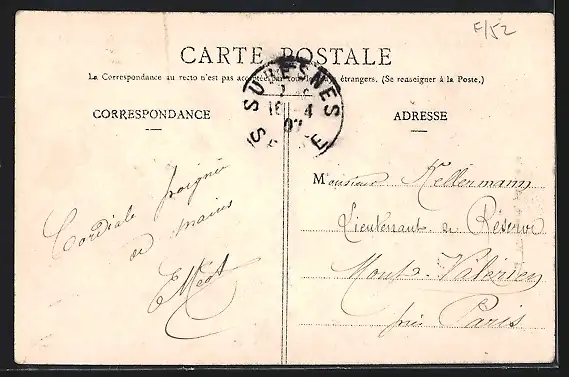 E/52
CARTE POSTALE
La Correspondance au recto n'est pas acceptée par tous les pays étrangers. (Se renseigner à la Poste.)
SURESNES
16 - 4
07
SEINE
CORRESPONDANCE
ADRESSE
Cordiale poignée
de mains
Monsieur Kellermann
Lieutenant de Réserve
Mont-Valérien
près Paris